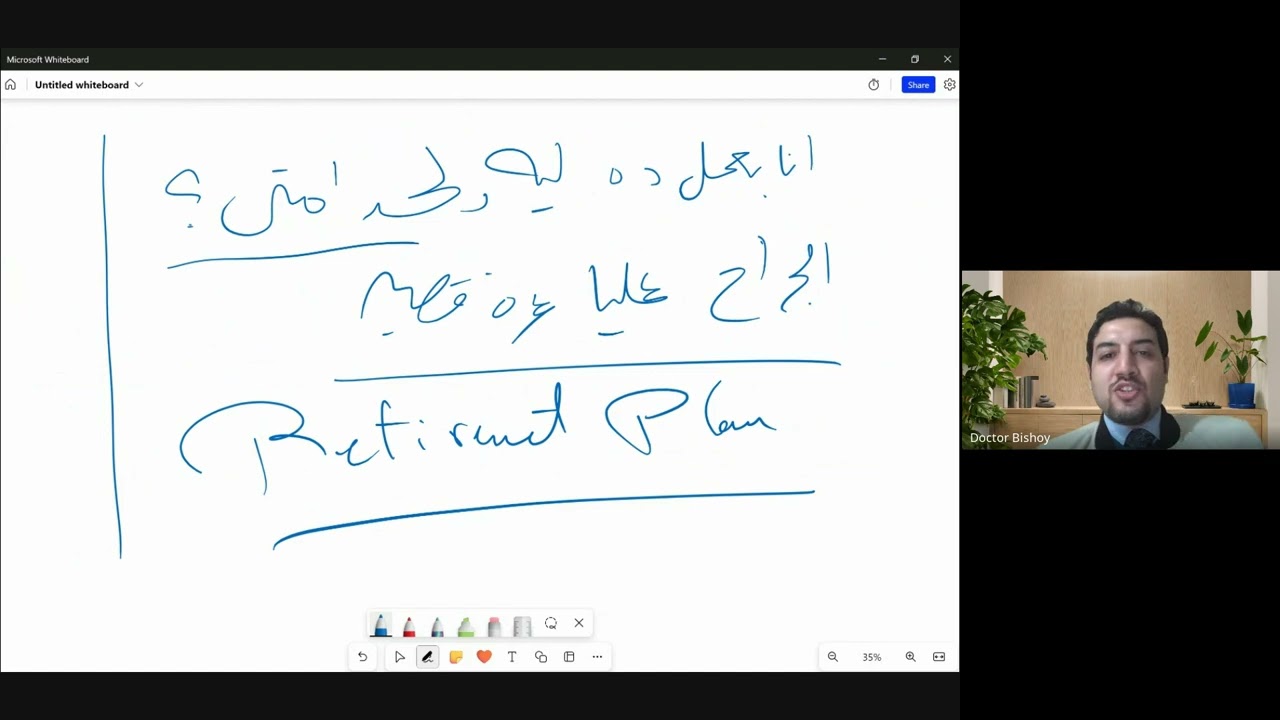 Microsoft Whiteboard
Untitled whiteboard
Share
انا بعمل ده ليه ولحد امتى ؟
الجراح
Retirement Plan
Doctor Bishoy
35%